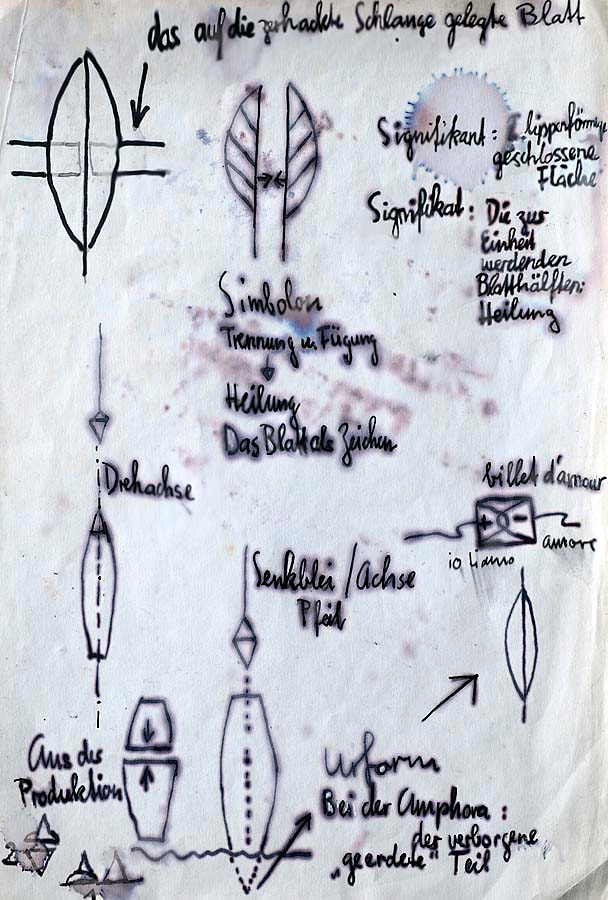 das auf die zerhackte Schlange gelegte Blatt
Signifikant: lippenförmige
geschlossene
Fläche
Signifikat: Die zur
Einheit
werdenden
Blatthälften:
Heilung
Simbolon
Trennung u. Fügung
Heilung
Das Blatt als Zeichen
Drehachse
billet d'amour
+ -
io ti amo
amore
Senkblei / Achse
Pfeil
Aus der
Produktion
Urform
Bei der Amphora:
der verborgene
"geerdete" Teil